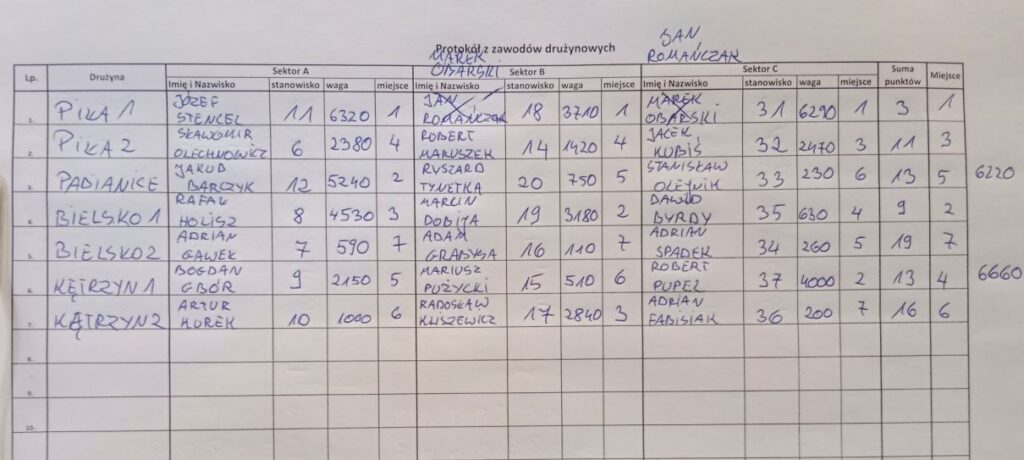 JAN
Protokół z zawodów drużynowych
MAREK ROMAŃCZAK
OBARSKI
Lp. Drużyna Sektor A Sektor B Sektor C Suma punktów Miejsce
Imię i Nazwisko stanowisko waga miejsce Imię i Nazwisko stanowisko waga miejsce Imię i Nazwisko stanowisko waga miejsce
1. PIKA 1 JÓZEF STENCEL 11 6320 1 JAN ROMAŃCZAK 18 3710 1 MAREK OBARSKI 31 6290 1 3 1
2. PIKA 2 SŁAWOMIR OLECHNOWICZ 6 2380 4 ROBERT MARUSZEK 14 1420 4 JACEK KUBIŚ 32 2470 3 11 3
3. PABIANICE JAKUB BARCZYK 12 5240 2 RYSZARD TYNETKA 20 750 5 STANISŁAW OLEJNIK 33 230 6 13 5 6220
4. BIELSKO 1 RAFAŁ HOLISZ 8 4530 3 MARCIN DOBIJA 19 3180 2 DAWID BYRDY 35 630 4 9 2
5. BIELSKO 2 ADRIAN GAWEK 7 590 7 ADAM GRABYSA 16 110 7 ADRIAN SPADEK 34 260 5 19 7
6. KĘTRZYN 1 BOGDAN GBÓR 9 2150 5 MARIUSZ PUŻYCKI 15 510 6 ROBERT PUPEL 37 4000 2 13 4 6660
7. KĄTRZYN 2 ARTUR KUREK 10 1000 6 RADOSŁAW KLISZEWICZ 17 2840 3 ADRIAN FABISIAK 36 200 7 16 6
8.
9.
10.